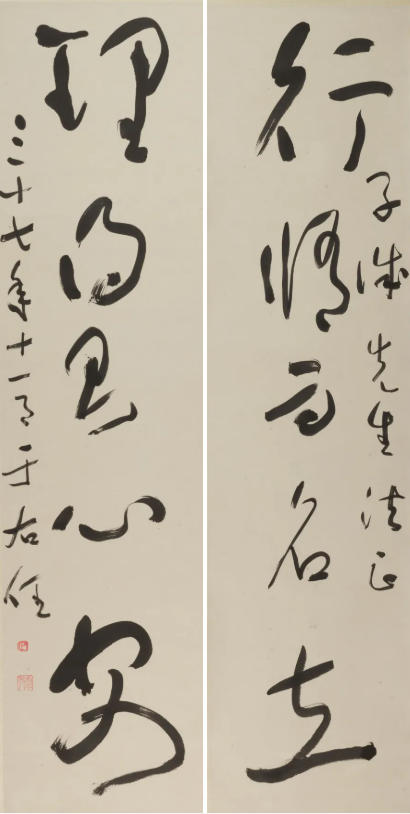 行脩而名立
子誠先生法正
理得則心安
三十七年十一月 于右任